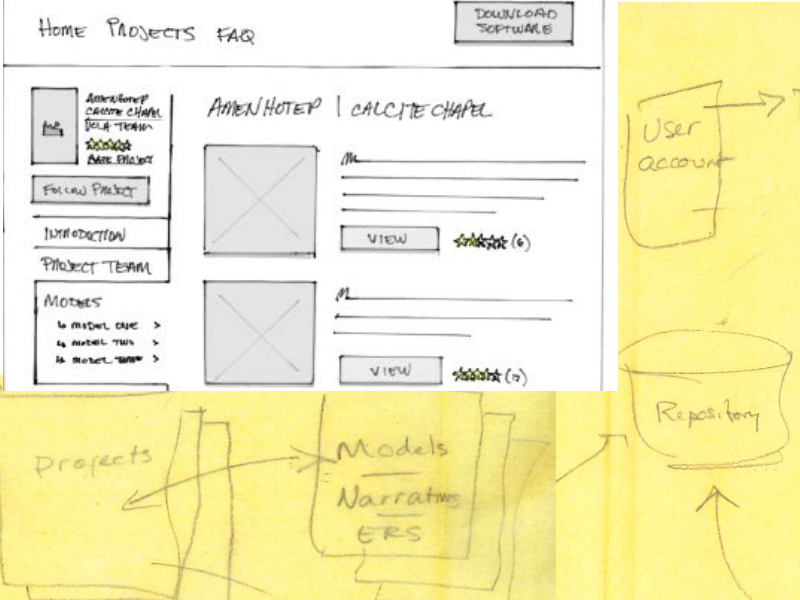 HOME PROJECTS FAQ
DOWNLOAD
SOFTWARE
AMENHOTEP
CALCITE CHAPEL
UCLA TEAM
RATE PROJECT
FOLLOW PROJECT
INTRODUCTION
PROJECT TEAM
MODELS
MODEL ONE >
MODEL TWO >
MODEL >
AMENHOTEP | CALCITE CHAPEL
VIEW
(6)
VIEW
User
account
Repository
Projects
Models
Narratives
ERS